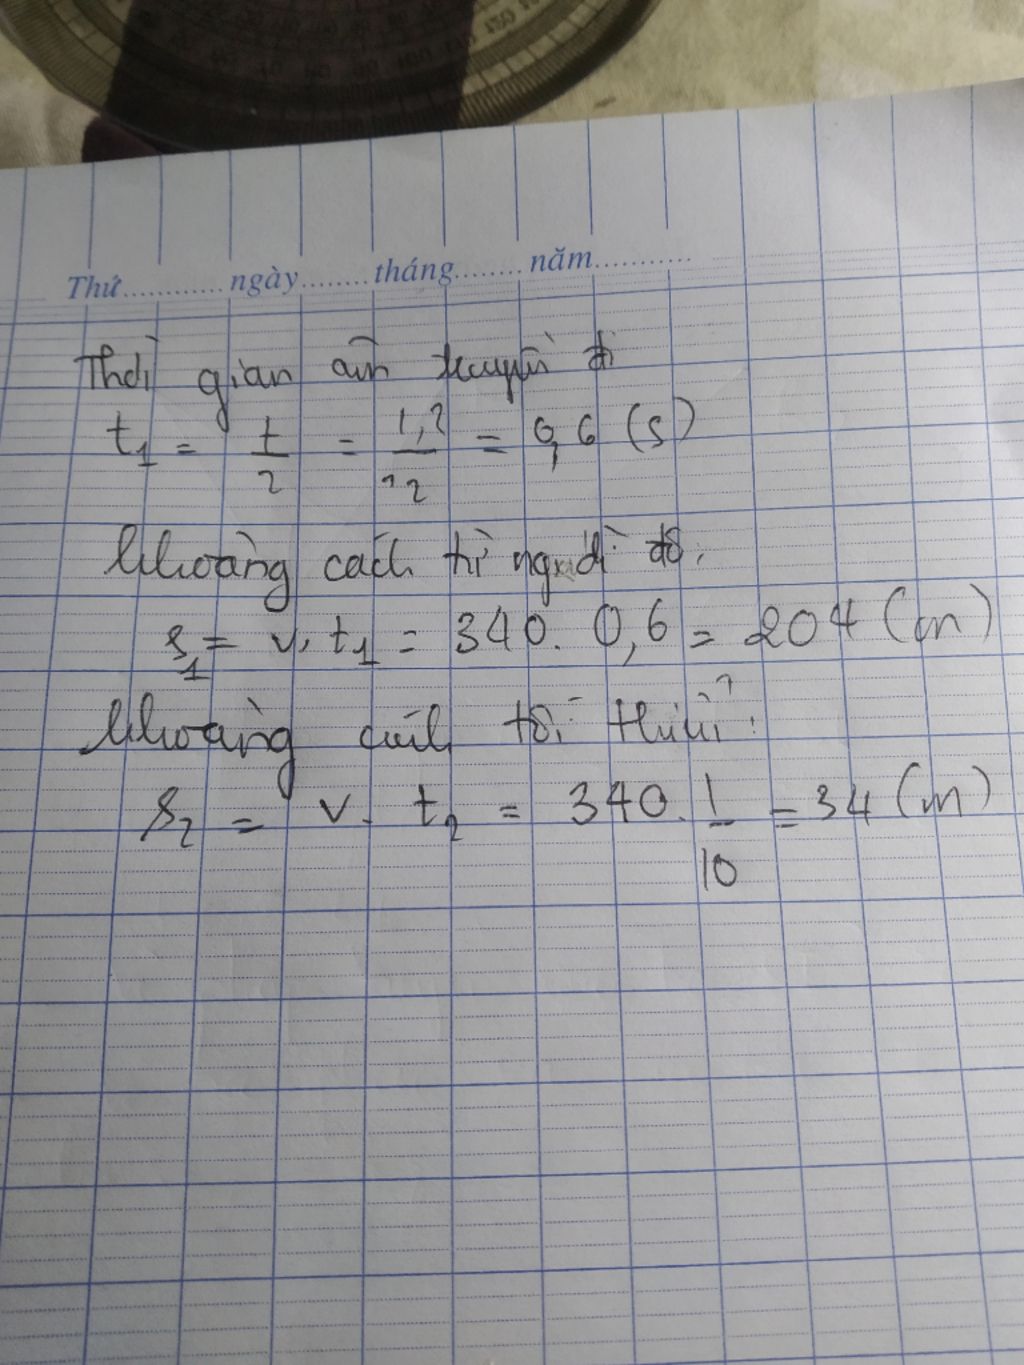 Thứ............ ngày........ tháng........ năm...........
Thời gian âm truyền đi
t₁ = t/2 = 1,2/2 = 0,6 (s)
khoảng cách từ người đó:
s₁ = v. t₁ = 340. 0,6 = 204 (m)
khoảng cách tối thiểu:
s₂ = v. t₂ = 340. 1/10 = 34 (m)